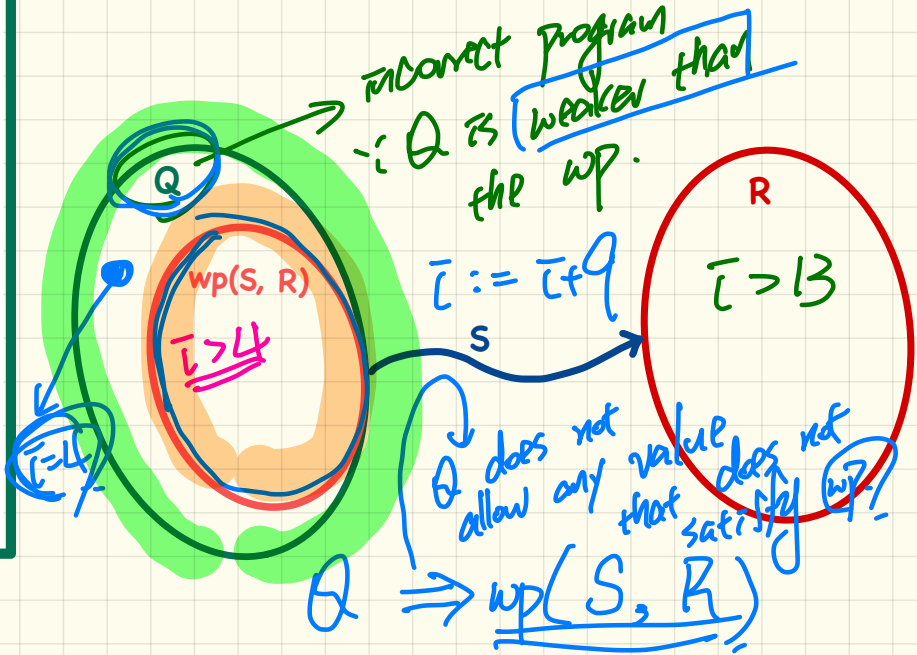 incorrect program
∵ Q is weaker than
the wp.
Q
R
wp(S, R)
i := i+9
i > 13
i > 4
S
i=4
Q does not
allow any value
that does not
satisfy wp.
Q ⇒ wp(S, R)